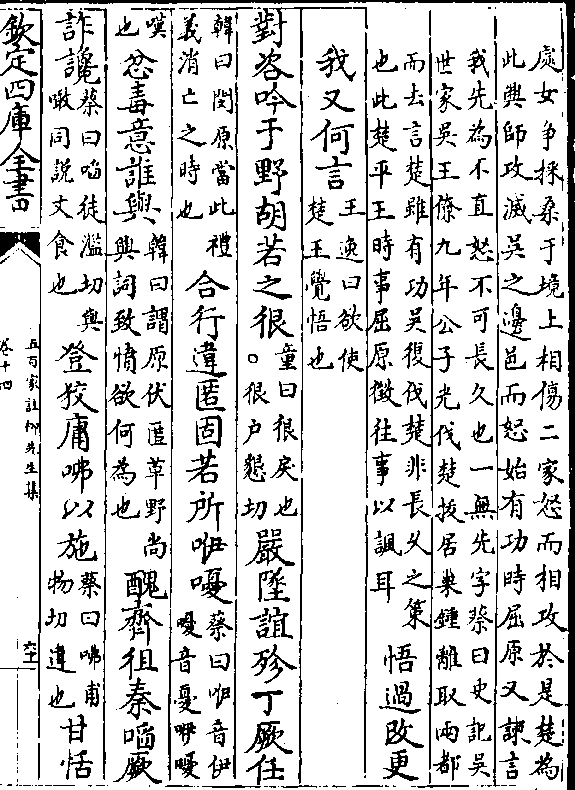 處女争採桑于境上相傷二家怒而相攻於是楚為
此興師攻滅吳之邊邑而怒始有功時屈原又諫言
我先為不直怒不可長久也一無先字蔡曰史記吳
世家吳王僚九年公子光伐楚拔居巢鍾離取兩都
而去言楚雖有功吳復伐楚非長久之策
也此楚平王時事屈原徵往事以諷耳
悟過改更
我又何言
王逸曰欲使
楚王覺悟也
對咨吟于野胡若之很
童曰很戾也
○很户懇切
嚴墜誼殄丁厥任
韓曰閔原當此禮
義消亡之時也
合行違匿固若所咿嚘
蔡曰咿音伊
嚘音憂咿嚘
嘆
也
忿毒意誰與
韓曰謂原伏匿草野尚
興詞致憤欲何為也
醜齊徂秦啗厥
詐讒
蔡曰啗徒濫切與
噉同說文食也
登狡庸咈以施
蔡曰咈甫
物切違也
甘恬
欽定四庫全書
五百家註柳先生集
卷十四